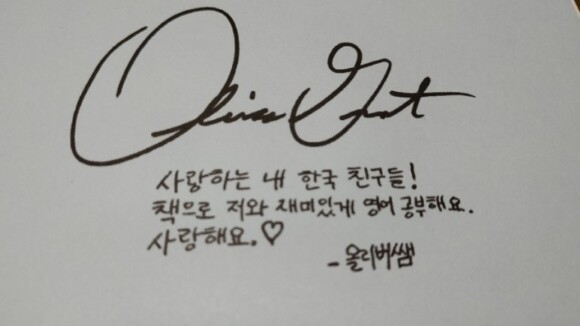 Oliver Grant
사랑하는 내 한국 친구들!
책으로 저와 재미있게 영어 공부해요.
사랑해요.♡
- 올리버쌤